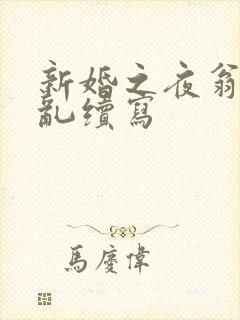 新婚之夜翁
亂續寫
馬慶偉